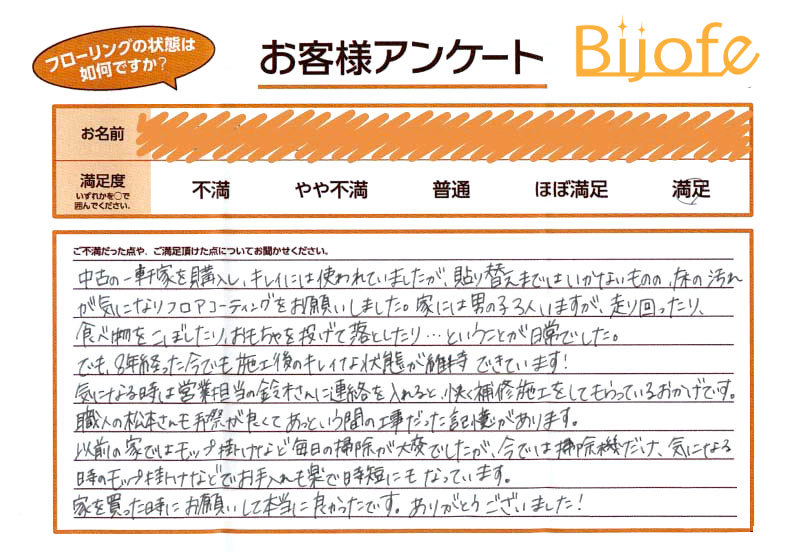 フローリングの状態は
如何ですか?
お客様アンケート
Bijofe
お名前
満足度
いずれかを○で
囲んでください。
不満 やや不満 普通 ほぼ満足 満足
ご不満だった点や、ご満足頂けた点についてお聞かせください。
中古の一軒家を購入し、キレイには使われていましたが、貼り替えまではいかないものの、床の汚れ
が気になりフロアコーティングをお願いしました。家には男の子3人いますが、走り回ったり、
食べ物をこぼしたり、おもちゃを投げて落としたり…ということが日常でした。
でも、8年経った今でも施工後のキレイな状態が維持できています!
気になる時は営業担当の鈴木さんに連絡を入れると、快く補修施工をしてもらっているおかげです。
職人の松本さんも手際が良くてあっという間の工事だった記憶があります。
以前の家ではモップ掛けなど毎日の掃除が大変でしたが、今では掃除機だけ、気になる
時のモップ掛けなどでお手入れも楽で時短にもなっています。
家を買った時にお願いして本当に良かったです。ありがとうございました!